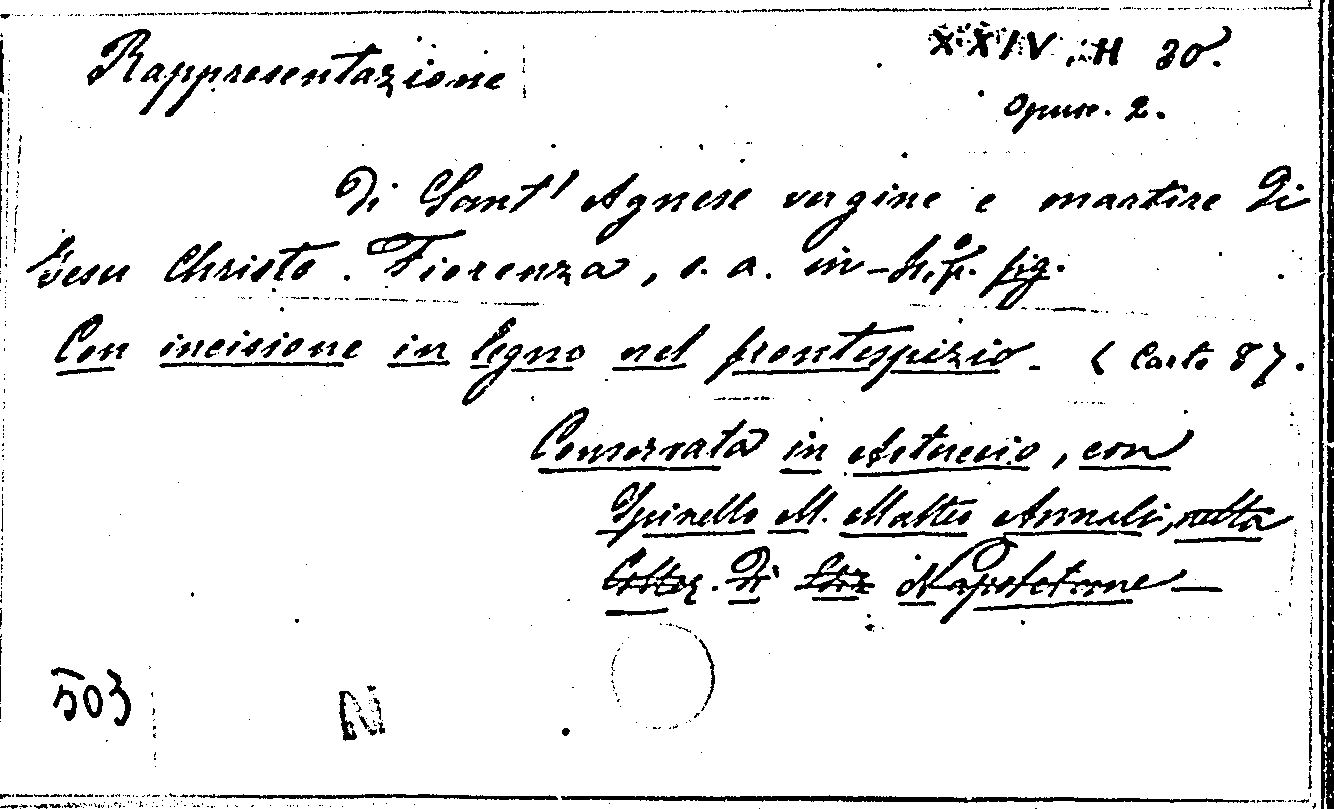 Rappresentazione
XXIV. H 30.
Opusc. 2.
di Sant' Agnese vergine e martire di
Gesu Christo. Fiorenza, s. a. in-4.º p. fig.
Con incisione in legno nel frontespizio. ( Carte 8).
Conservata in Astuccio, con
Spinello M. Matteo Annali, nella
Collez. di Napoletane —
503
N